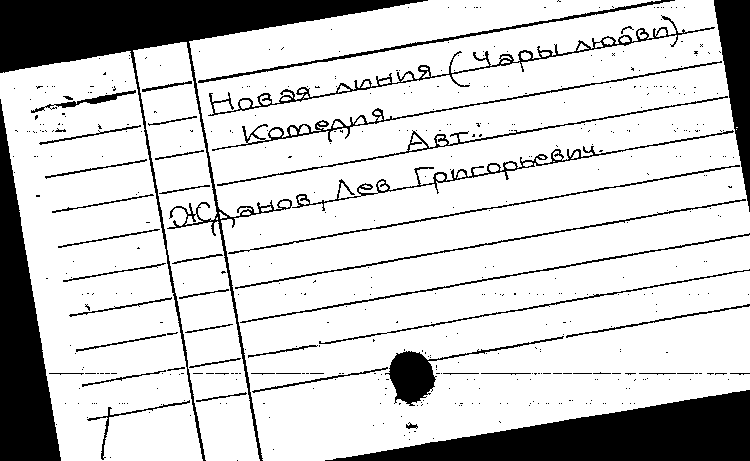 Новая линия (Чары любви).
Комедия.
Авт.:
Жданов, Лев Григорьевич.